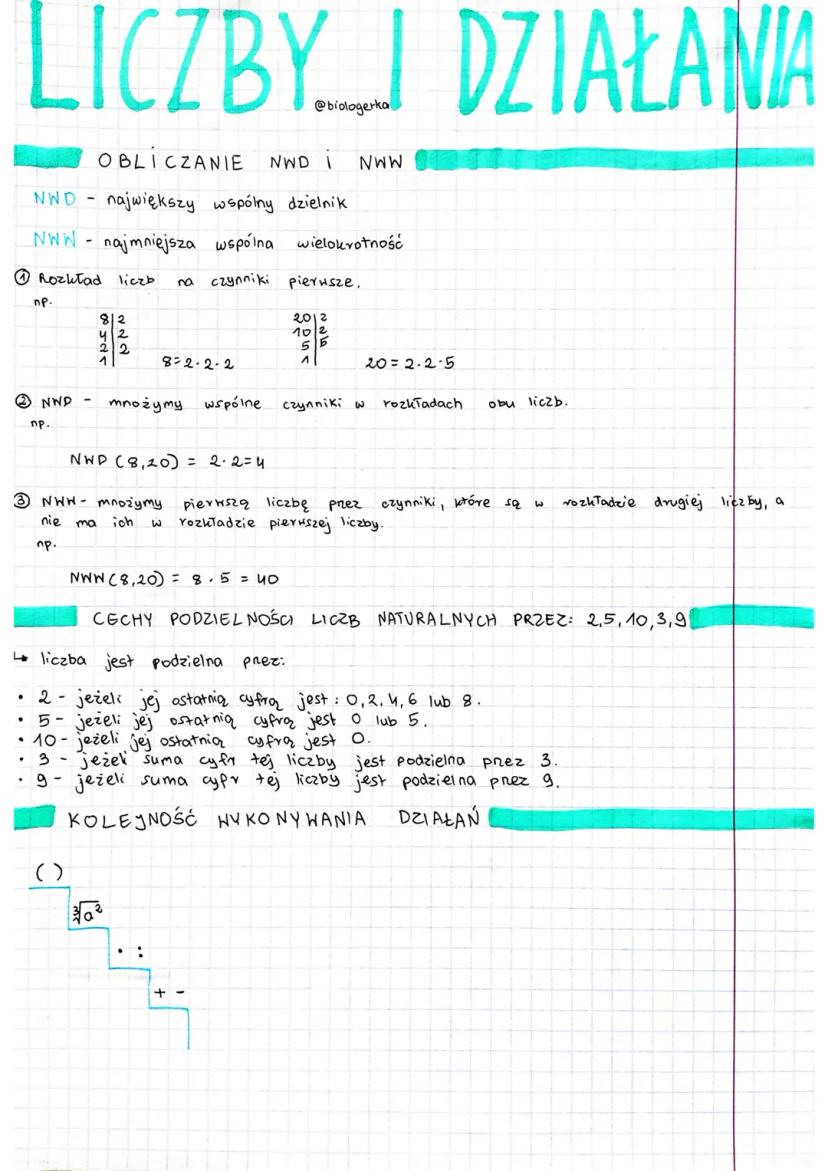 LICZBY I DZIAŁANIA
@biologerka
OBLICZANIE NWD i NWW
NWD - największy wspólny dzielnik
NWW - najmniejsza wspólna wielokrotność
① Rozkład liczb na czynniki pierwsze.
np.
8|2 20|2
4|2 10|2
2|2 5|5
1| 8=2·2·2 1| 20=2·2·5
② NWD - mnożymy wspólne czynniki w rozkładach obu liczb.
np.
NWD (8,20) = 2·2=4
③ NWW - mnożymy pierwszą liczbę przez czynniki, które są w rozkładzie drugiej liczby, a
nie ma ich w rozkładzie pierwszej liczby.
np.
NWW (8,20) = 8·5 = 40
CECHY PODZIELNOŚCI LICZB NATURALNYCH PRZEZ: 2,5,10,3,9
↳ liczba jest podzielna przez:
• 2 - jeżeli jej ostatnią cyfrą jest: 0,2,4,6 lub 8.
• 5 - jeżeli jej ostatnią cyfrą jest 0 lub 5.
• 10 - jeżeli jej ostatnią cyfrą jest 0.
• 3 - jeżeli suma cyfr tej liczby jest podzielna przez 3.
• 9 - jeżeli suma cyfr tej liczby jest podzielna przez 9.
KOLEJNOŚĆ WYKONYWANIA DZIAŁAŃ
( )
∛a²
· :
+ -